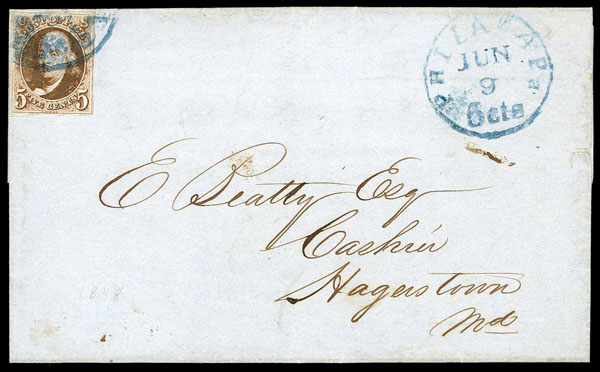 5 FIVE CENTS 5
PHILADA Pa
JUN
9
5cts
E Beatty Esq
Cashier
Hagerstown
Md
1848